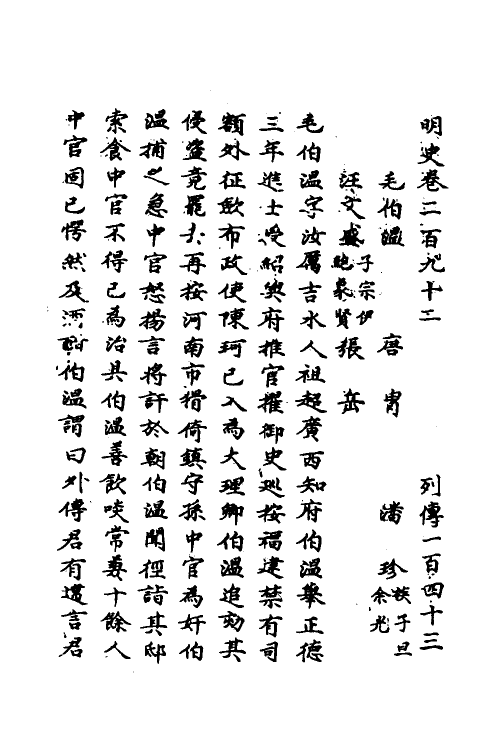 明史卷二百九十二　列傳一百四十三
毛伯溫　唐胄　潘珍族子旦余光
汪文盛子宗伊鮑象賢張岳
毛伯溫字汝厲吉水人祖超廣西知府伯溫舉正德
三年進士受紹興府推官擢御史巡按福建禁有司
額外征歛布政使陳珂已入為大理卿伯溫追劾其
侵盜竟罷去再按河南市猾倚鎮守孫中官為奸伯
溫捕之急中官怒揚言將訐於朝伯溫聞徑詣其邸
索食中官不得已為治具伯溫善飲啖常兼十餘人
中官固已愕然及酒酣伯溫謂曰外傳君有遺言君